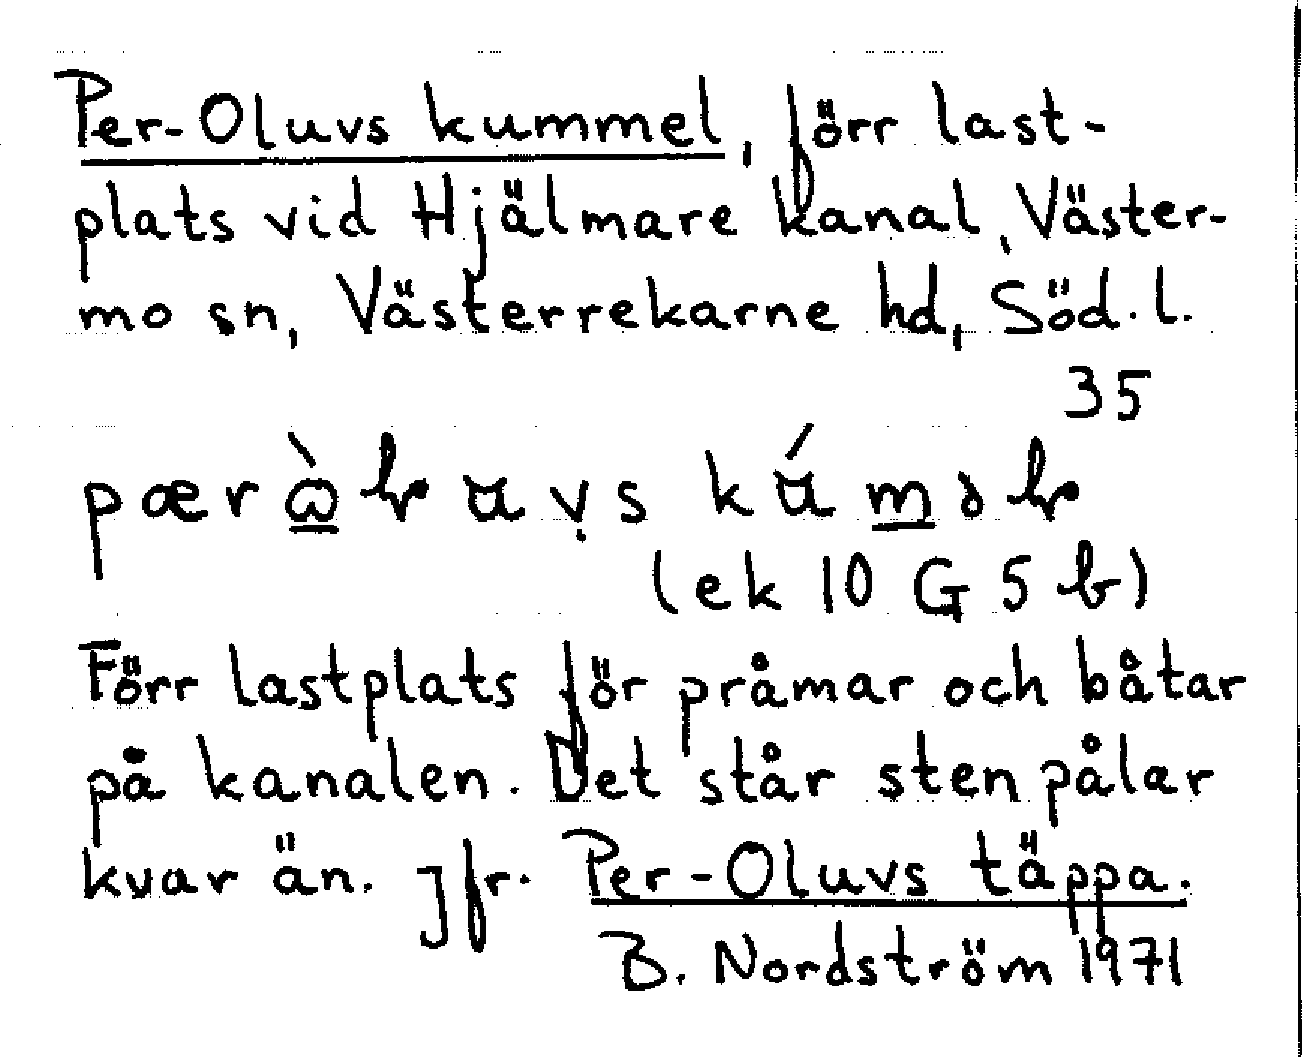 Per-Oluvs kummel, förr last-
plats vid Hjälmare kanal, Väster-
mo sn, Västerrekarne hd, Söd. l.
35
(ek 10 G 5 b)
Förr lastplats för pråmar och båtar
på kanalen. Det står sten pålar
kvar än. Jfr. Per-Oluvs täppa.
B. Nordström 1971